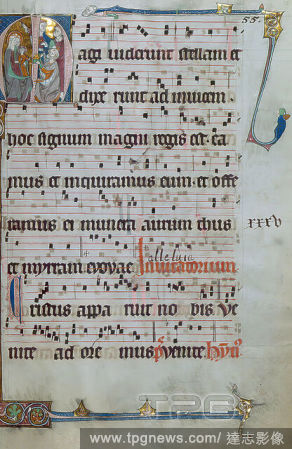 55
agi viderunt stellam et
dixerunt ad invicem
hoc signum magni regis est ea
mus et inquiramus eum et offe
ramus ei munera aurum thus
xxxv
alleluia
et myrram evovae Invitatorium
Cristus appa ruit no bis Ve
nite ad ore mus venite
TPG
www.tpgnews.com / 達志影像